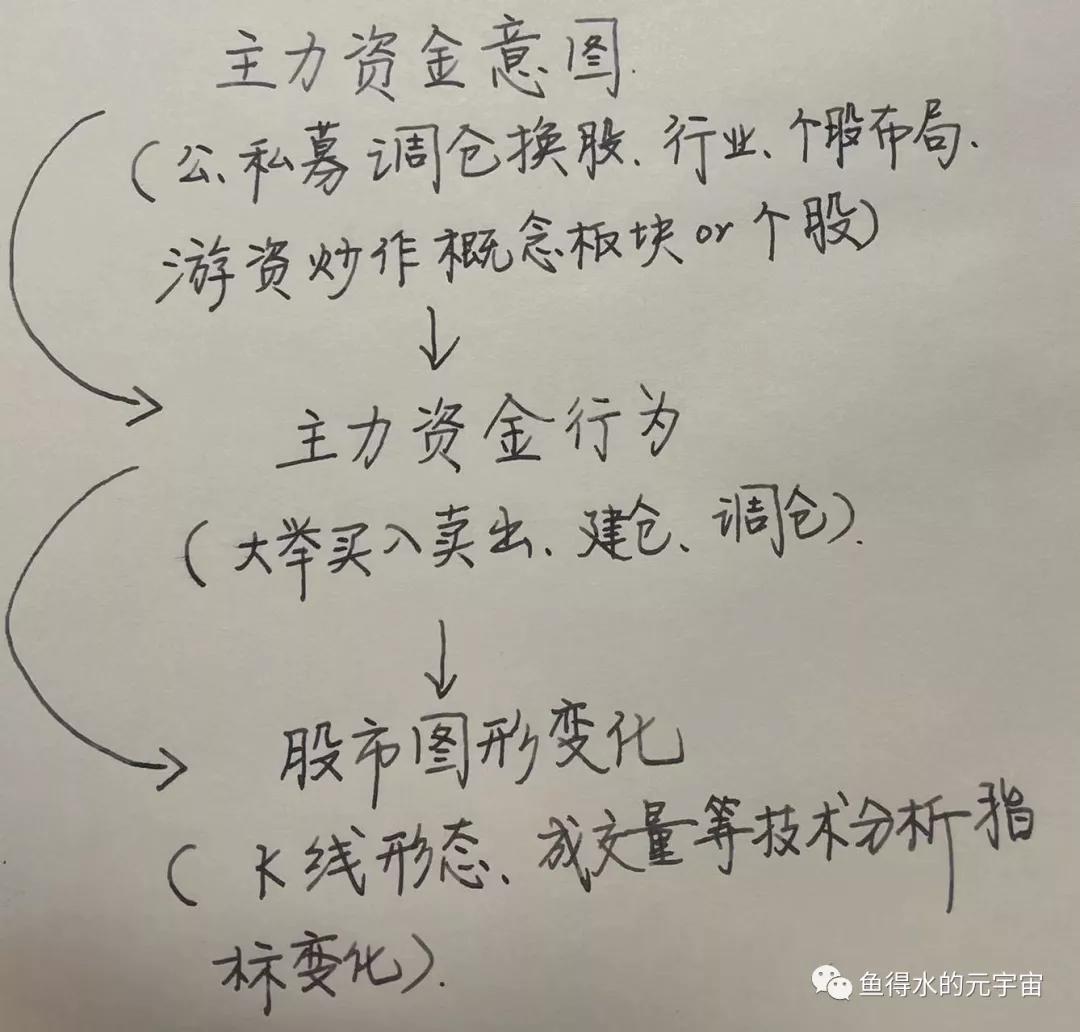 主力资金意图.
(公、私募调仓换股、行业、个股布局.
游资炒作概念板块or个股)
↓
主力资金行为
(大举买入卖出、建仓、调仓).
↓
股市图形变化
(K线形态、成交量等技术分析指
标变化).
鱼得水的元宇宙